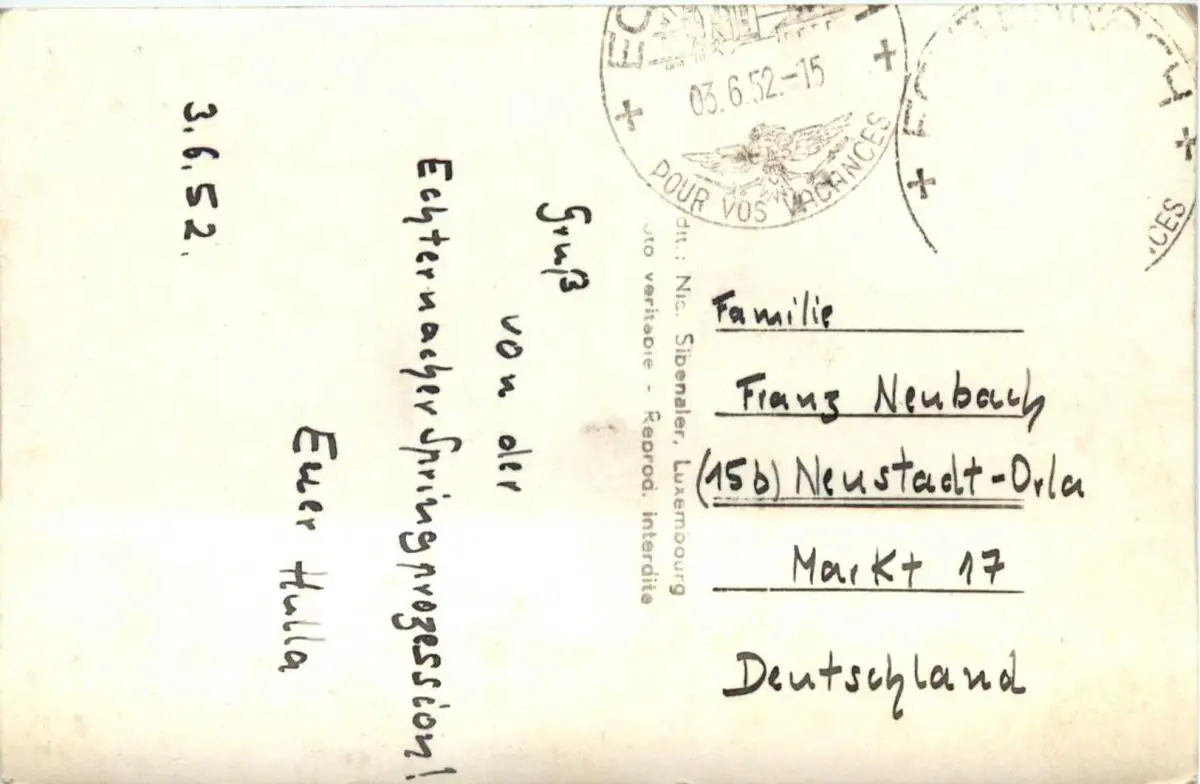 3.6.52.
Gruß
von der
Echternacher Springprozession!
Euer Hulla
03.6.52.-15
POUR VOS VACANCES
dit.: Nic. Sibenaler, Luxembourg
oto veritable - Reprod. interdite
Familie
Franz Neubach
(15b) Neustadt-Orla
Markt 17
Deutschland